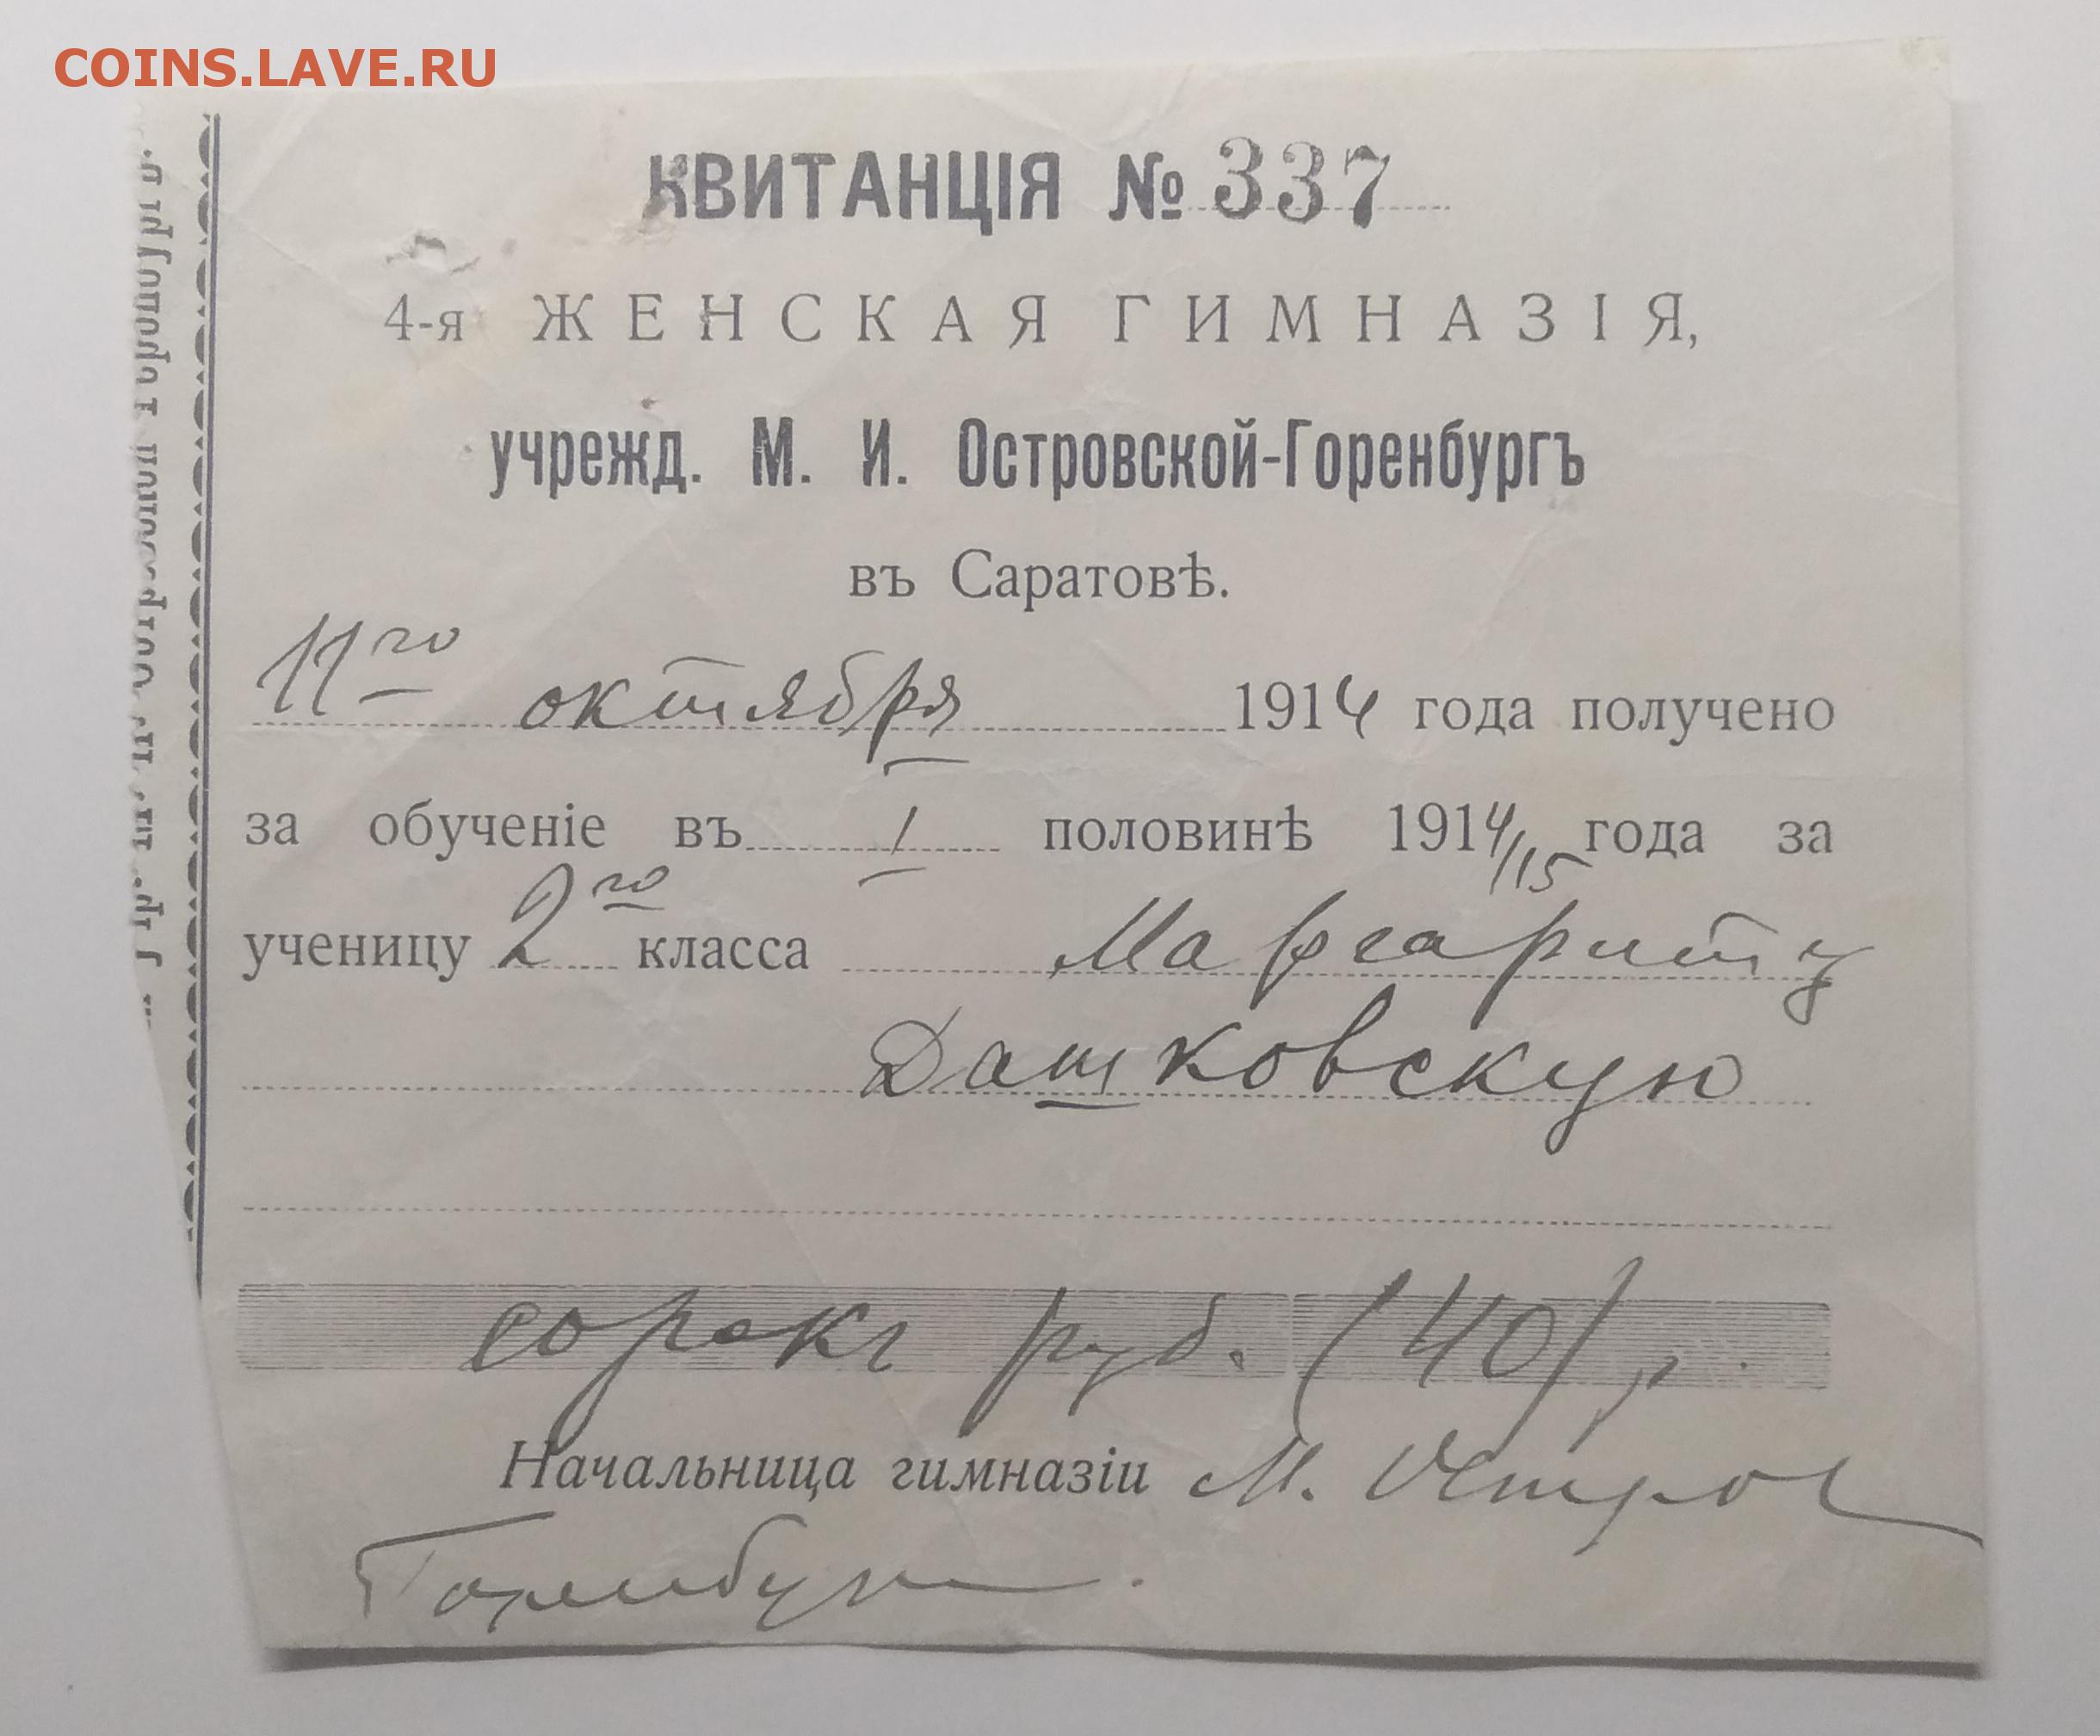 COINS.LAVE.RU
КВИТАНЦІЯ № 337
4-я ЖЕНСКАЯ ГИМНАЗІЯ,
учрежд. М. И. Островской-Горенбургъ
въ Саратовѣ.
11го октября 1914 года получено
за обученіе въ I половинѣ 1914/15 года за
ученицу 2го класса Маргариту
Дашковскую
сорокъ руб. (40) р.
Начальница гимназіи М. Остров
Горенбург